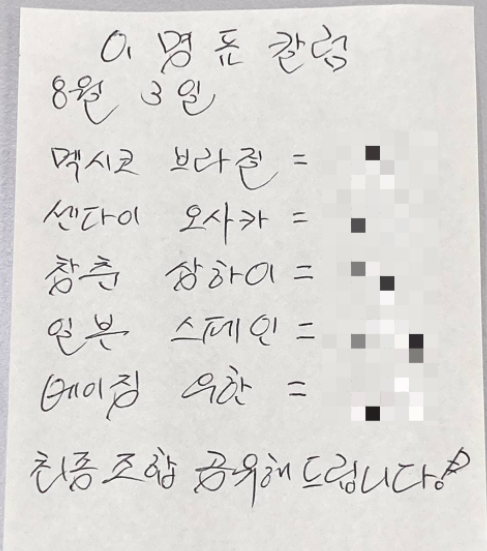 이명표 칼럼
8월 3일
멕시코 브라질 =
센다이 오사카 =
창춘 상하이 =
일본 스페인 =
베이징 우한 =
최종조합 공유해드립니다.